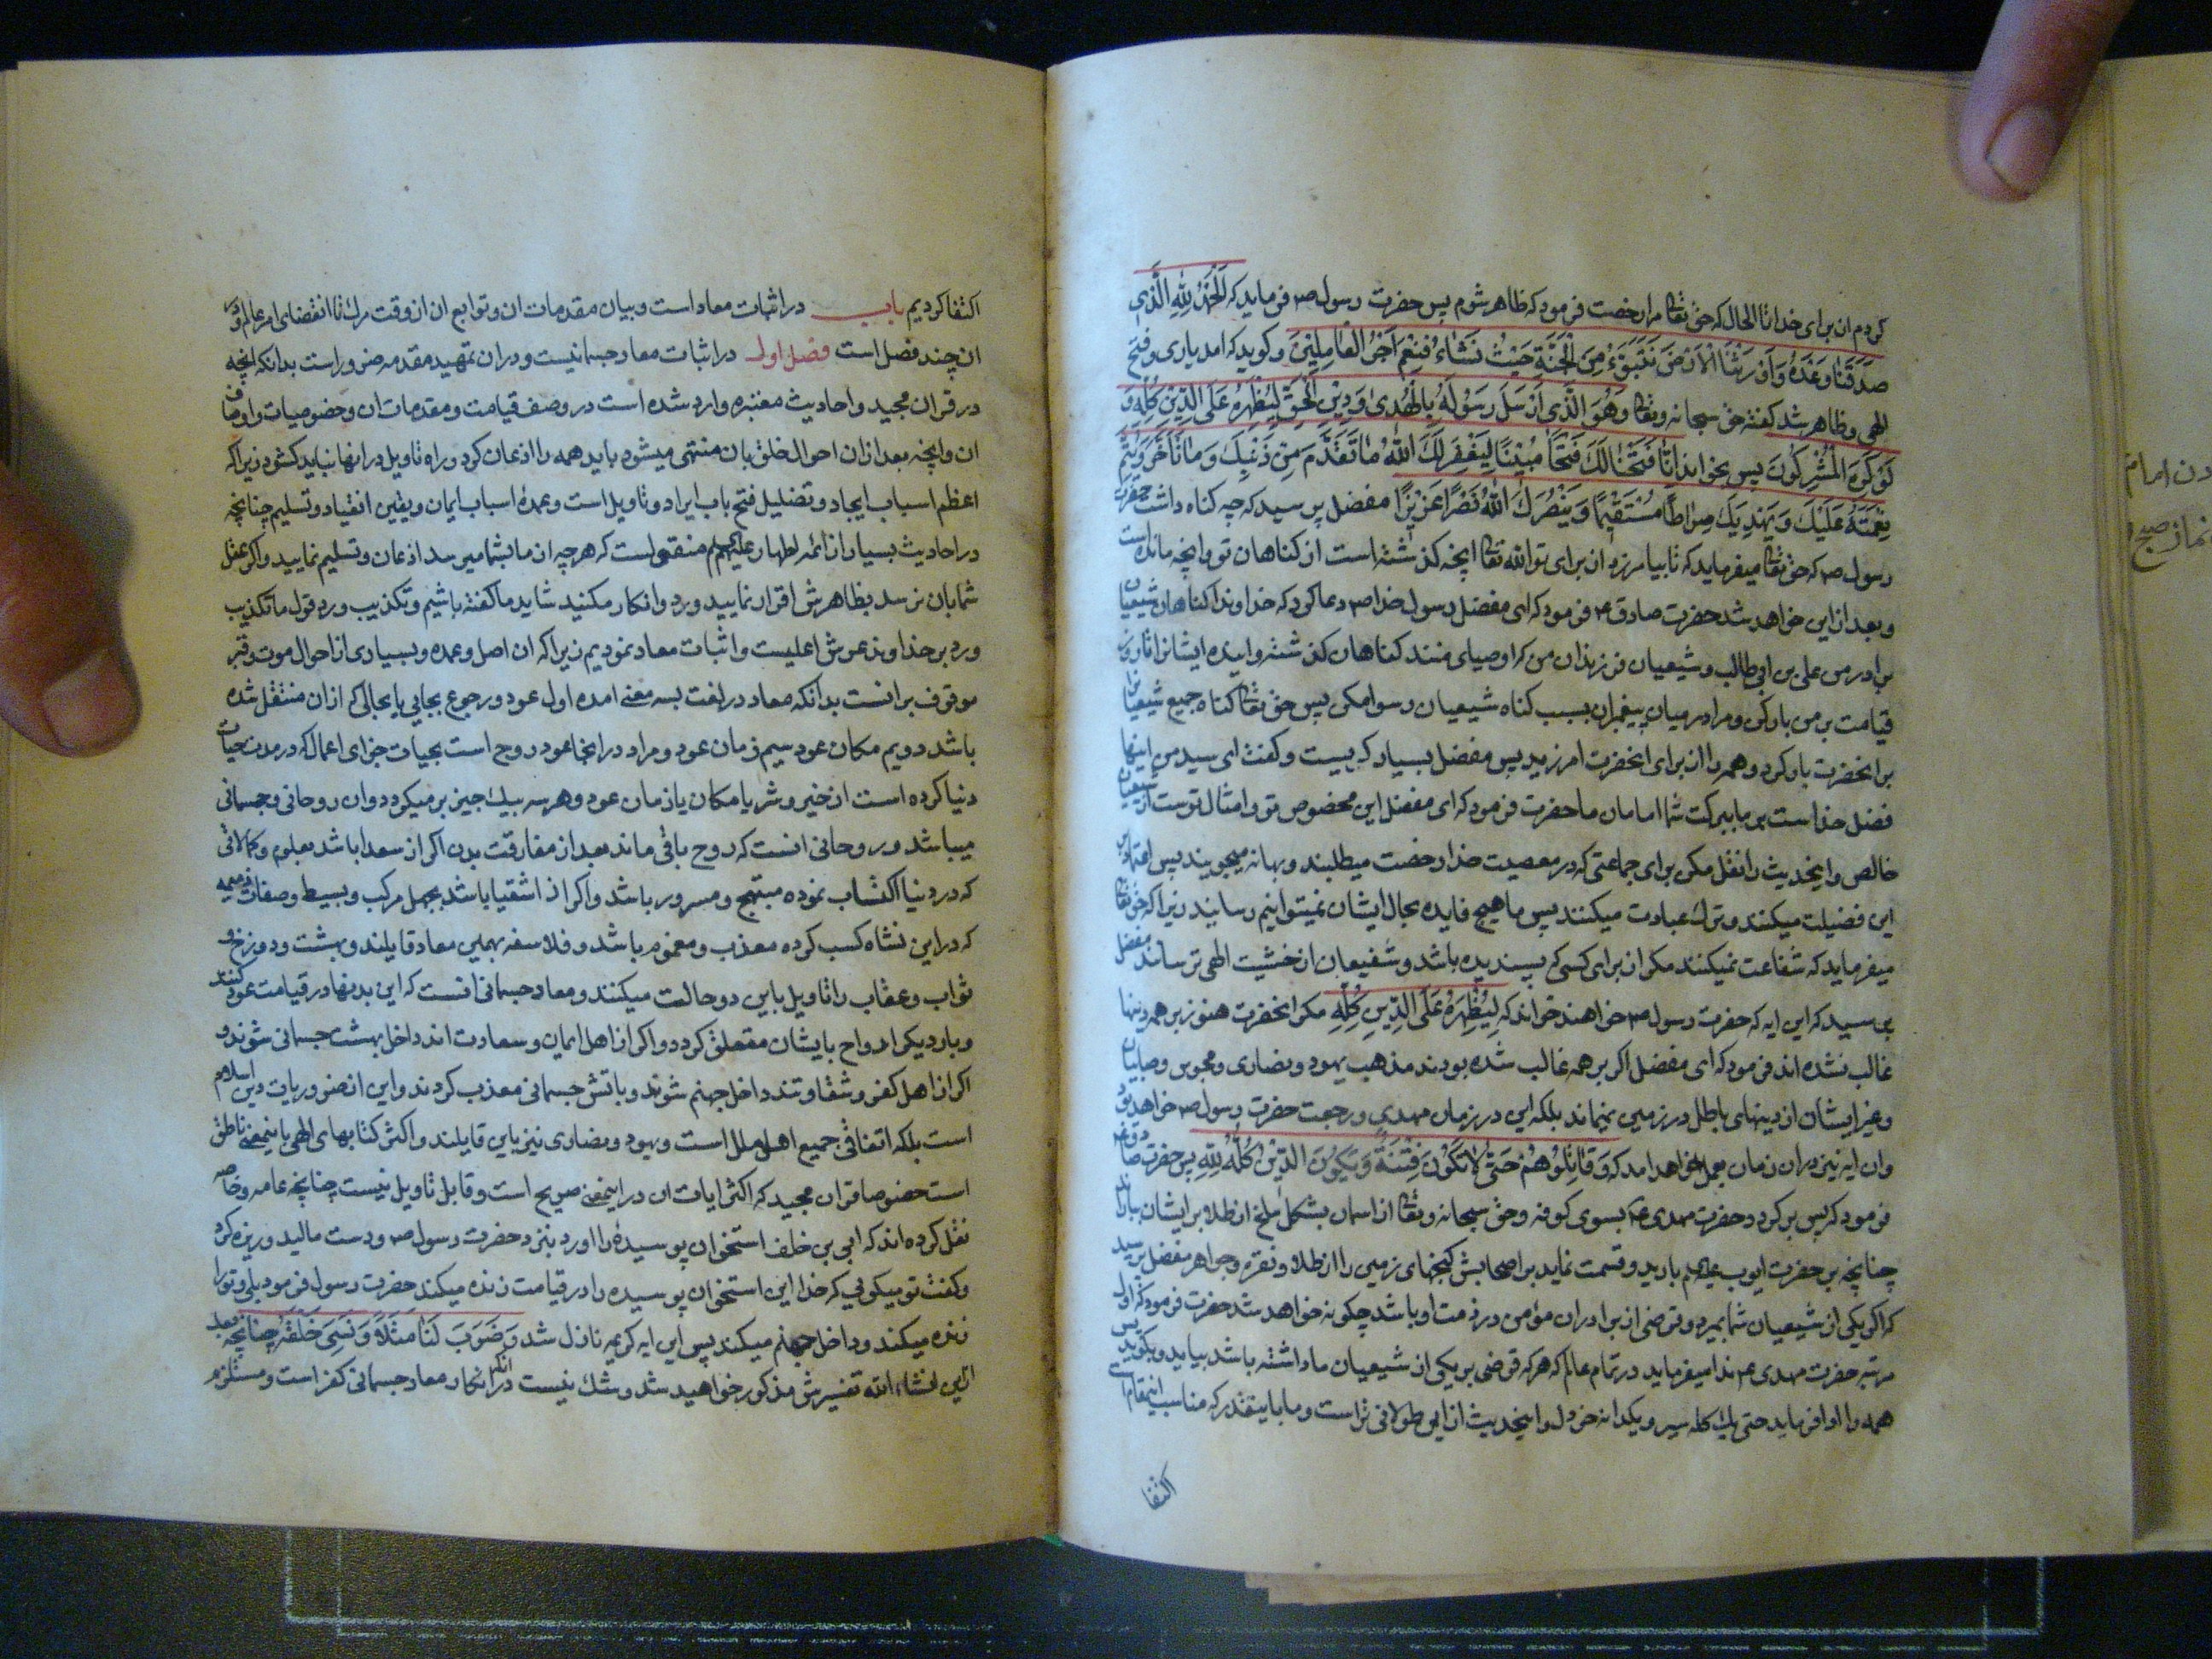 کردم ان برای خدا تا الحال که حق تعالی مرا رخصت فرمود که ظاهر شوم پس حضرت رسول ص فرماید که الْحَمْدُ لِلّٰهِ الَّذی
صَدَقَنا وَعْدَهُ وَاَوْرَثَنَا الْاَرْضَ نَتَبَوَّءُ مِنَ الْجَنَّةِ حَیْثُ نَشآءُ فَنِعْمَ اَجْرُ الْعامِلینَ و کوید که امد یاری و فتح
الهی و ظاهر شد کفته حق سبحانه و تعالی وَهُوَ الَّذی اَرْسَلَ رَسُولَهُ بِالْهُدی وَدینِ الْحَقِّ لِیُظْهِرَهُ عَلَی الدّینِ کُلِّهِ وَ
لَوْ کَرِهَ الْمُشْرِکُونَ پس بخواند اِنّا فَتَحْنا لَکَ فَتْحاً مُبیناً لِیَغْفِرَ لَکَ اللّٰهُ ما تَقَدَّمَ مِنْ ذَنْبِکَ وَما تَاَخَّرَ وَیُتِمَّ
نِعْمَتَهُ عَلَیْکَ وَیَهْدِیَکَ صِراطاً مُسْتَقیماً وَیَنْصُرَکَ اللّٰهُ نَصْراً عَزیزاً مفضل پرسید که چه کناه داشت حضرت
رسول ص که حق تعالی میفرماید که تا بیامرزد از برای تو الله تعالی انچه کذشته است از کناهان تو و انچه مانده است
و بعد از این خواهد شد حضرت صادق ع فرمود که ای مفضل رسول خدا ص دعا کرد که خداوندا کناهان شیعیان
برادر من علی بن ابی طالب و شیعیان فرزندان من که اوصیای منند کناهان کذشته و اینده ایشانرا تا روز
قیامت بر من بار کن و مرا در میان پیغمبران بسبب کناه شیعیان رسوا مکن پس حق تعالی کناه جمیع شیعیان را
بر انحضرت بار کرد و همه را از برای انحضرت امرزید پس مفضل بسیار کریست و کفت ای سید من اینها
فضل خداست بر ما ببرکت شما امامان ما حضرت فرمود که ای مفضل این مخصوص تو و امثال توست از شیعیان
خالص و اینحدیث را نقل مکن برای جماعتی که در معصیت خدا رخصت میطلبند و بهانه میجویند پس اعتماد بر
این فضیلت میکنند و ترک عبادت میکنند پس ما هیچ فایده بحال ایشان نمیتوانیم رسانید زیرا که حق تعالی
میفرماید که شفاعت نمیکنند مکر از برای کسی که پسندیده باشد و شفیعان از خشیت الهی ترسانند مفضل
پرسید که این ایه که حضرت رسول ص خواهند خواند که لِیُظْهِرَهُ عَلَی الدّینِ کُلِّهِ مکر انحضرت هنوز بر همه دینها
غالب نشده اند فرمود که ای مفضل اکر بر همه غالب شده بودند مذهب یهود و نصاری و مجوس و صابیان
و غیر ایشان از دینهای باطل در زمین نمیماند بلکه این در زمان مهدی و رجعت حضرت رسول ص خواهد بود
و ان ایه نیز دران زمان بعمل خواهد امد که وَقاتِلُوهُمْ حَتّی لا تَکُونَ فِتْنَةٌ وَیَکُونَ الدّینُ کُلُّهُ لِلّٰهِ پس حضرت صادق ع
فرمود که پس بر کردد حضرت مهدی ع بسوی کوفه و حق سبحانه و تعالی از اسمان بشکل ملخ از طلا بر ایشان بباراند
چنانچه بر حضرت ایوب علیه السلم بارید و قسمت نماید بر اصحابش کنجهای زمین را از طلا و نقره و جواهر مفضل پرسید
که اکر یکی از شیعیان شما بمیرد و قرضی از برادران مؤمن در ذمت او باشد چکونه خواهد شد حضرت فرمود که اول
مرتبه حضرت مهدی ع ندا میفرماید در تمام عالم که هر که قرضی بر یکی از شیعیان ما داشته باشد بیاید و بکوید پس
همه را ادا فرماید حتی یک کله سیر و یکدانه خردل و اینحدیث از این طولانی تر است و ما باینقدر که مناسب اینمقام است
اکتفا
اکتفا کردیم باب در اثبات معاد است و بیان مقدمات ان و توابع ان از وقت مرک تا انقضای امر عالم و در
ان چند فصل است فصل اول در اثبات معاد جسمانیست و در ان تمهید مقدمه ضرور است بدانکه انچه
در قران مجید و احادیث معتبره وارد شده است در وصف قیامت و مقدمات ان و خصوصیات و اوصاف
ان و انچه بعد از ان احوال خلق بان منتهی میشود باید همه را اذعان کرد و راه تاویل در انها نباید کشود زیرا که
اعظم اسباب ایجاد و تضلیل فتح باب ایراد و تاویل است و عمدهٔ اسباب ایمان و یقین انقیاد و تسلیم چنانچه
در احادیث بسیار از ائمه اطهار علیهم السلم منقولست که هر چه از ما بشما میرسد اذعان و تسلیم نمایید و اکر عقل
شما بان نرسد بظاهرش اقرار نمایید و رد و انکار مکنید شاید ما کفته باشیم و تکذیب و رد قول ما تکذیب
و رد بر خداوند عرش اعلیست و اثبات معاد نمودیم زیرا که ان اصل و عمده و بسیاری از احوال موت و قبر
موقوف بر انست بدانکه معاد در لغت بسه معنی امده اول عود و رجوع بجایی یا بحالی که از ان منتقل شده
باشد دویم مکان عود سیم زمان عود و مراد در اینجا عود روح است بحیات جزای اعمال که در مدت حیات
دنیا کرده است از خیر و شر یا مکان یا زمان عود و هر سه بیک چیز بر میکردد و ان روحانی و جسمانی
میباشد و روحانی انست که روح باقی ماند بعد از مفارقت بدن اکر از سعدا باشد بعلوم و کمالاتی
که در دنیا اکتساب نموده مبتهج و مسرور باشد و اکر از اشقیا باشد بجهل مرکب و بسیط و صفات ذمیمه
که در این نشاه کسب کرده معذب و مغموم باشد و فلاسفه بهمین معاد قایلند و بهشت و دوزخ و
ثواب و عقاب را تاویل باین دو حالت میکنند و معاد جسمانی انست که این بدنها در قیامت عود کنند
و بار دیکر ارواح بایشان متعلق کردد و اکر از اهل ایمان و سعادت اند داخل بهشت جسمانی شوند و
اکر از اهل کفر و شقاوتند داخل جهنم شوند و باتش جسمانی معذب کردند و این از ضروریات دین اسلام
است بلکه اتفاقی جمیع اهل ملل است و یهود و نصاری نیز باین قایلند و اکثر کتابهای الهی باینمعنی ناطق
است خصوصا قران مجید که اکثر ایات ان در اینمعنی صریح است و قابل تاویل نیست چنانچه عامه و خاصه
نقل کرده اند که ابی بن خلف استخوان پوسیدهٔ را اورد بنزد حضرت رسول ص و دست مالید و ریزه کرد
و کفت تو میکویی که خدا این استخوان پوسیده را در قیامت زنده میکند حضرت رسول فرمود بلی و تو را
زنده میکند و داخل جهنم میکند پس این ایه کریمه نازل شد وَضَرَبَ لَنا مَثَلاً وَنَسِیَ خَلْقَهُ چنانچه بعد
ازین انشاء الله تفسیرش مذکور خواهید شد و شک نیست در انکه انکار معاد جسمانی کفر است و مستلزم
دن امام
نماز صبح و